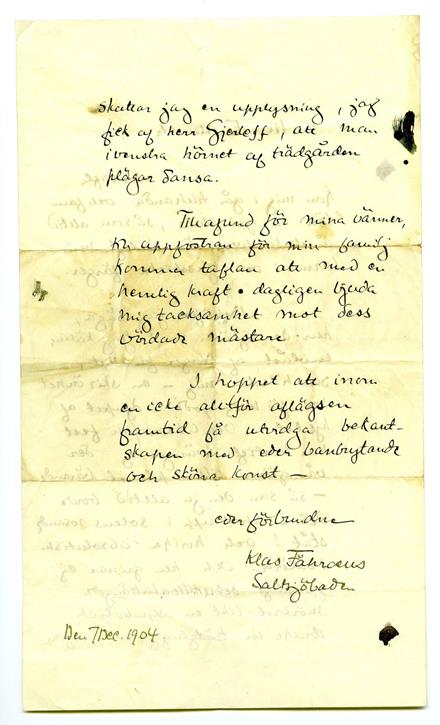 skattar jag en upplysning, jag
fick af herr Gjerløff, att man
i venstra hörnet af trädgården
plägar dansa.
Till afund för mina vänner,
till uppfostran för min familj
kommer taflan att med en
hemlig kraft dagligen bjuda
mig tacksamhet mot dess
vördade mästare.
I hoppet att inom
en icke alltför aflägsen
framtid få utvidga bekant-
skapen med eder banbrytande
och sköna konst —
eder förbundne
Klas Fåhraeus
Saltsjöbaden
Den 7 Dec. 1904.